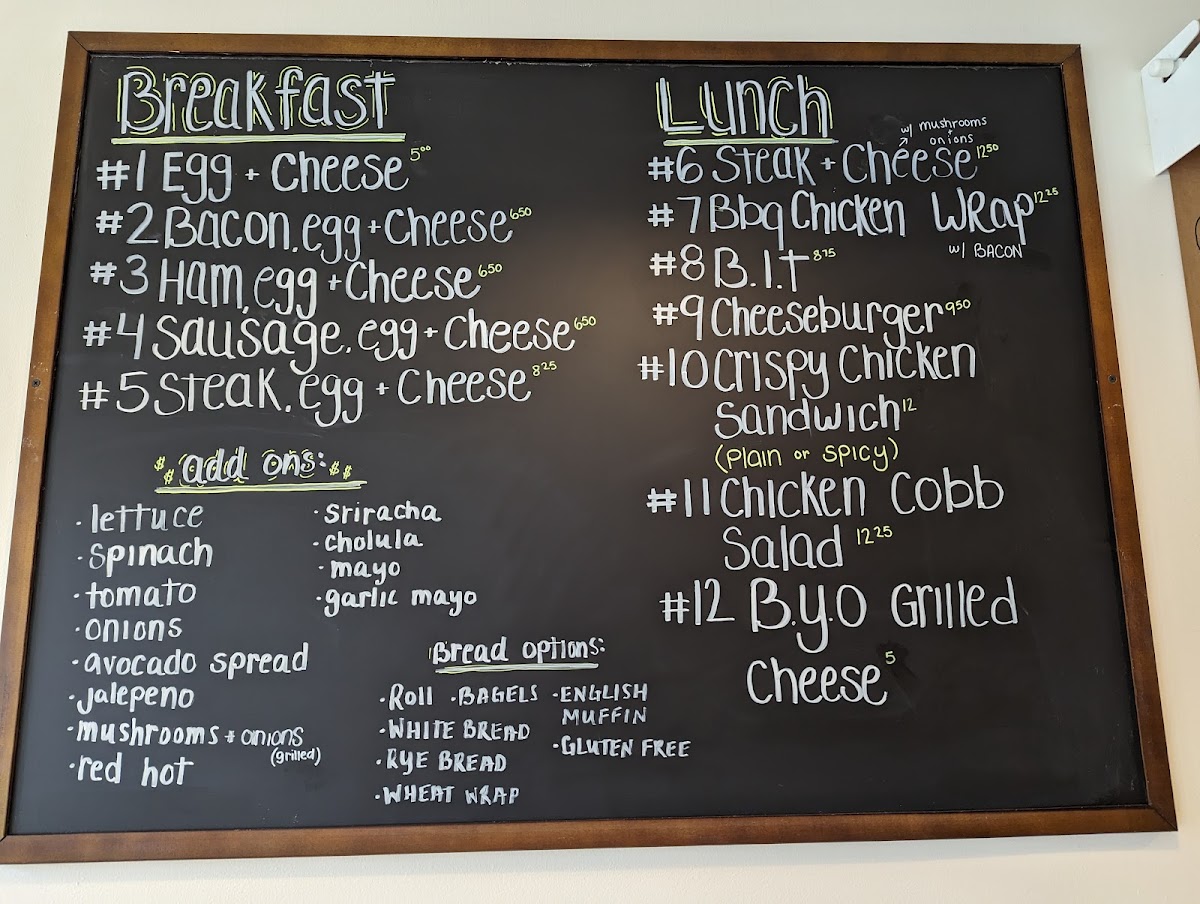 Breakfast
#1 Egg + Cheese 5⁰⁰
#2 Bacon, egg + Cheese 6⁵⁰
#3 Ham, egg + Cheese 6⁵⁰
#4 Sausage, egg + Cheese 6⁵⁰
#5 Steak, egg + Cheese 8²⁵
$ $ add ons: $ $
· lettuce
· spinach
· tomato
· onions
· avocado spread
· jalepeno
· mushrooms + onions
(grilled)
· red hot
· sriracha
· cholula
· mayo
· garlic mayo
Bread options:
· Roll
· WHITE BREAD
· RYE BREAD
· WHEAT WRAP
· BAGELS
· ENGLISH
MUFFIN
· GLUTEN FREE
Lunch
w/ mushrooms
+ onions
#6 Steak + Cheese 12⁵⁰
#7 Bbq Chicken Wrap 12²⁵
w/ BACON
#8 B.l.t 8⁷⁵
#9 Cheeseburger 9⁵⁰
#10 Crispy Chicken
Sandwich 12
(Plain or spicy)
#11 Chicken Cobb
Salad 12²⁵
#12 B.y.o Grilled
Cheese 5